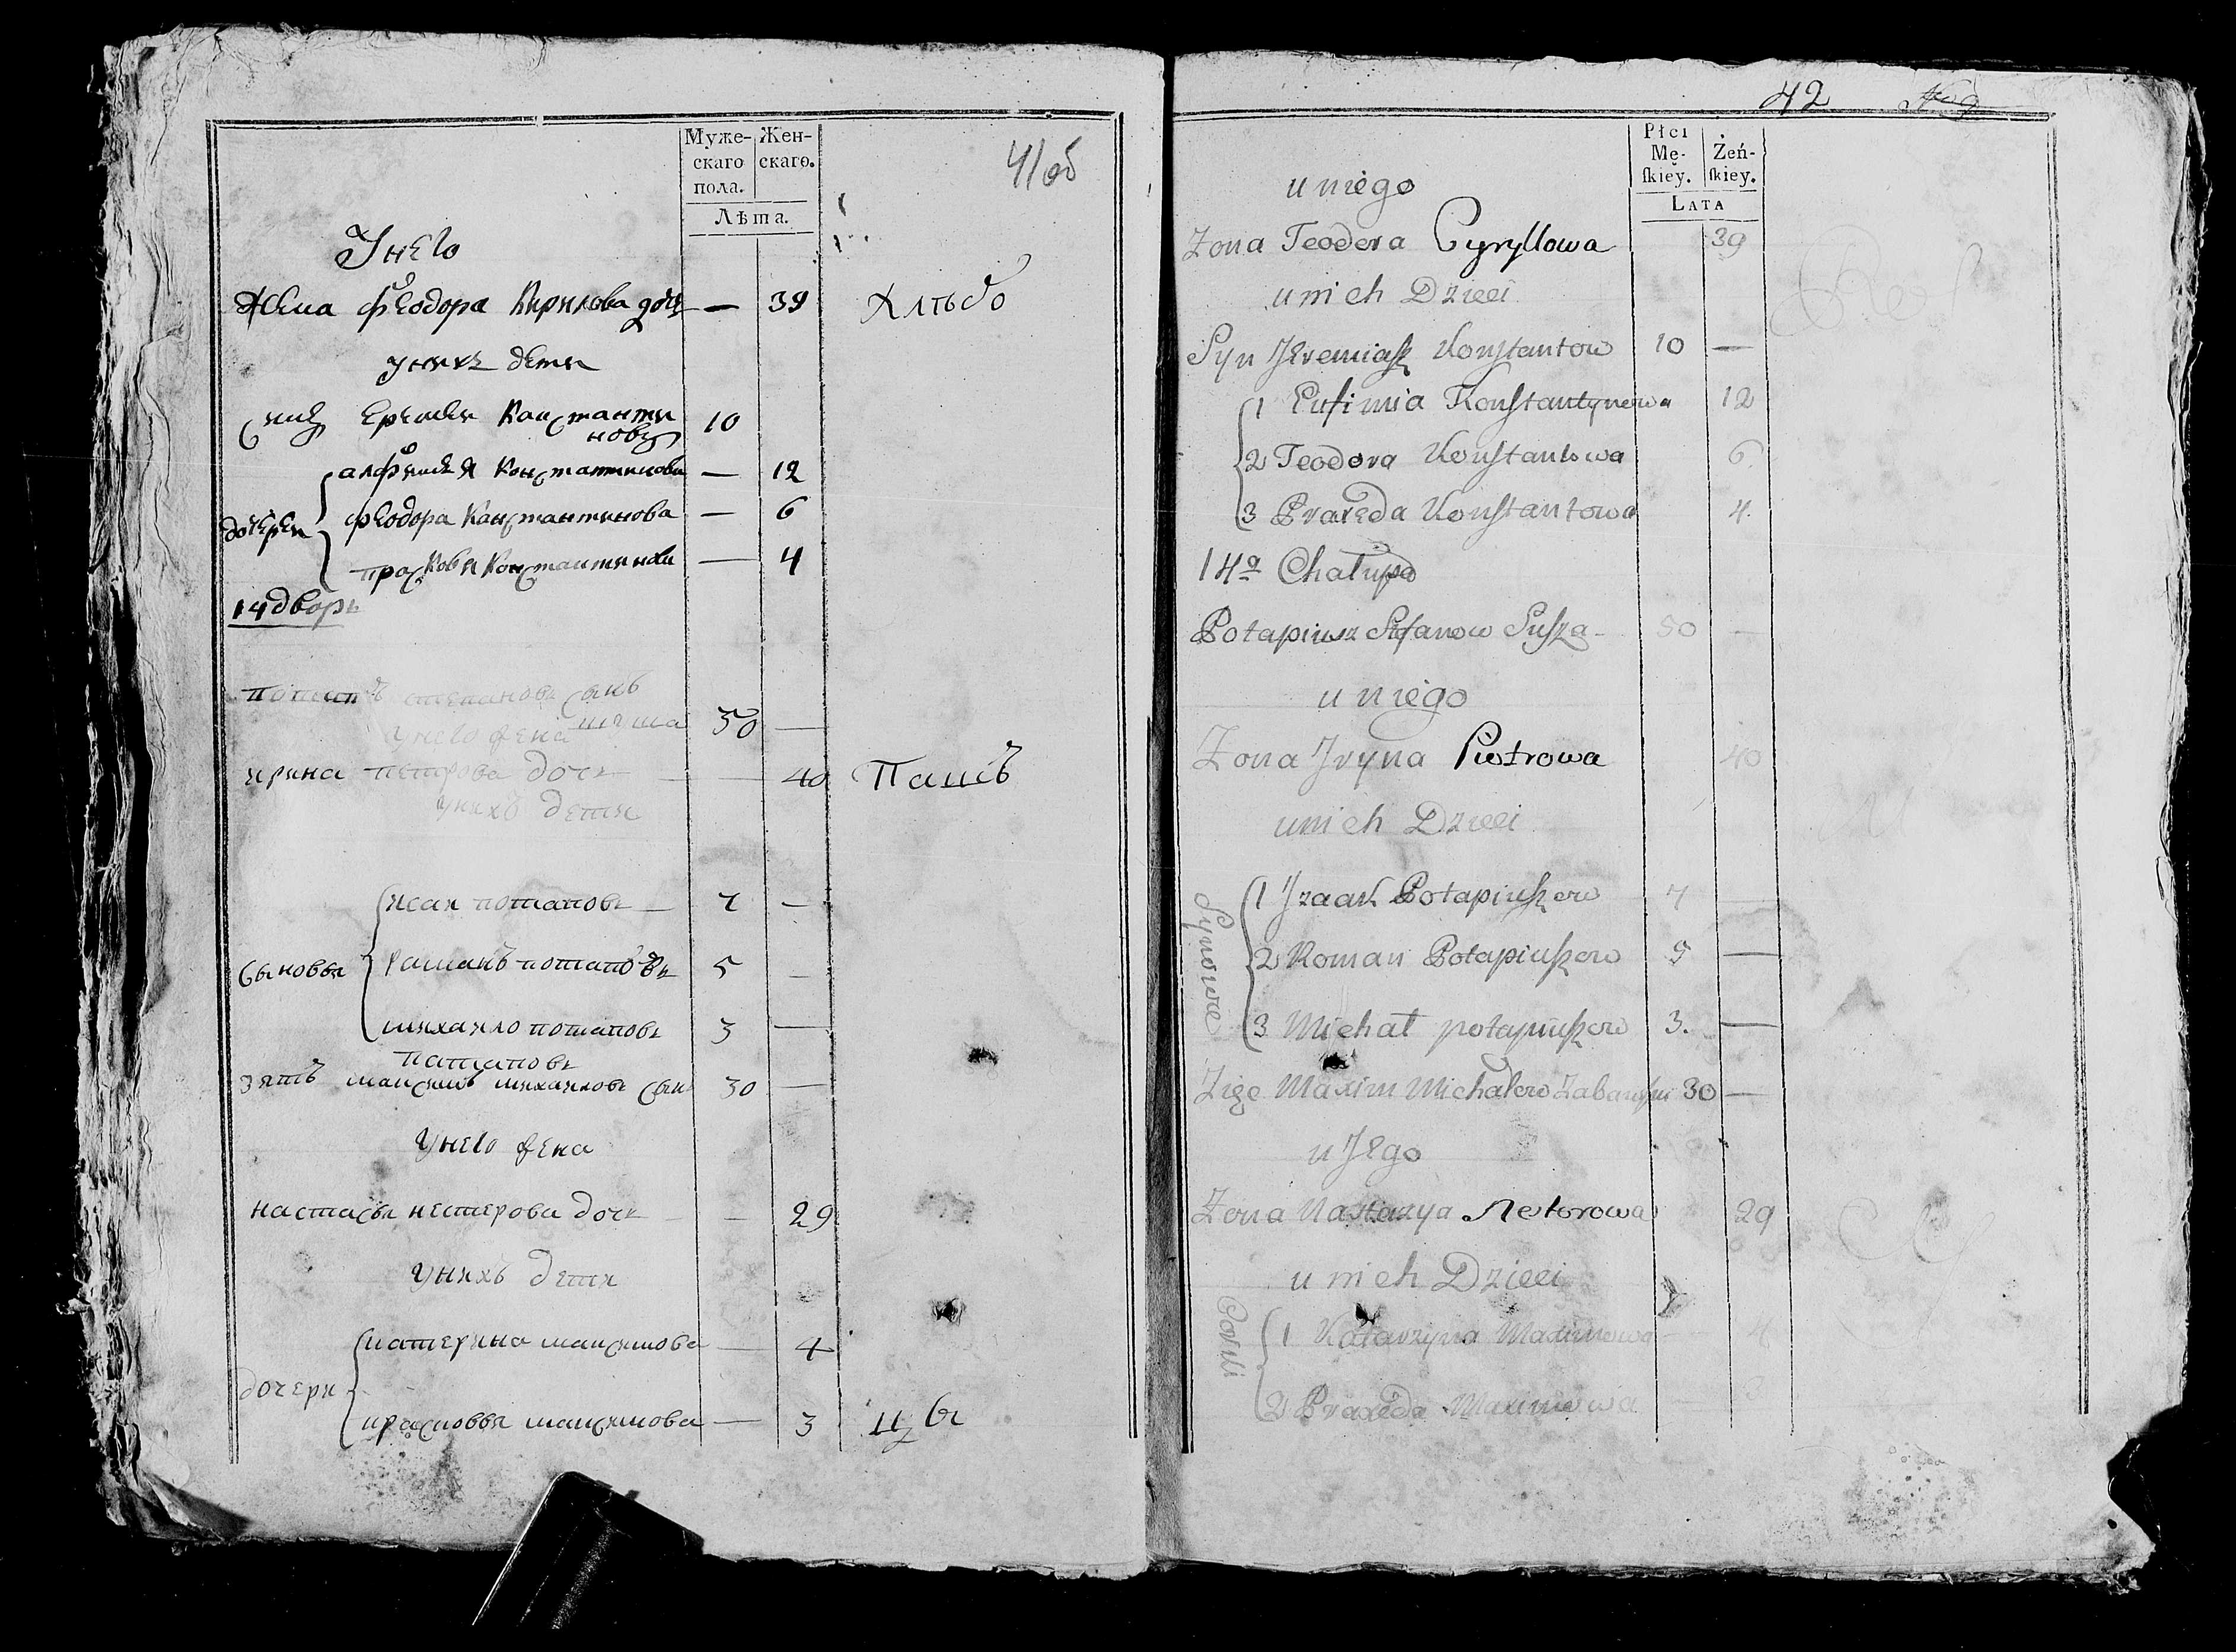 Муже-
скаго
пола.
Жен-
скаго.
Лѣта.
41об
У него
жена феодора Кирилова дочь — 39
Хлѣбо
у нихъ дети
синъ Еремеи Канстанти
новъ 10
дочери
алфимея Константинова — 12
феодора Канстантинова — 6
прасковя Констант — 4
14 дворъ
потапъ степановъ сынъ
шуша 50 —
у него жена
ирина петрова дочь — 40
Пашъ
у нихъ дети
Сыновья
исак потаповъ — 7 —
Раманъ потаповъ 5 —
михаило потаповъ 3 —
потаповъ
зять максимъ михаиловъ сын 30 —
У него жена
настасья нестерова дочь — 29
У нихъ дети
дочери
катерина максимова — 4
прасковья максимова — 3
42
Płci
Mę-
ſkiey.
Żeń-
ſkiey.
Lata
u niego
Zona Teodora Cyryllowa 39
u nich Dzieci
Syn Jeremiaſz Konſtantow 10 —
1 Eufimia Konſtantynowa 12
2 Teodora Konſtantowa 6.
3 Praxeda Konſtantowa 4.
14a Chałupa
Potapiusz Stefanow Suſza 50 —
u niego
Zona Jryna Piotrowa 40
u nich Dzieci
Synowie
1 Jzaak Potapiuſzow 7
2 Roman Potapiuſzow 5 —
3 Michał potapiuſzow 3. —
Zięc Maxim Michałow 30 —
u Jego
Zona Nastazya Nestorowa 29
u nich Dzieci
Corki
1 Katarzyna Maximowa — 4
2 Praxeda Maximowa — 3